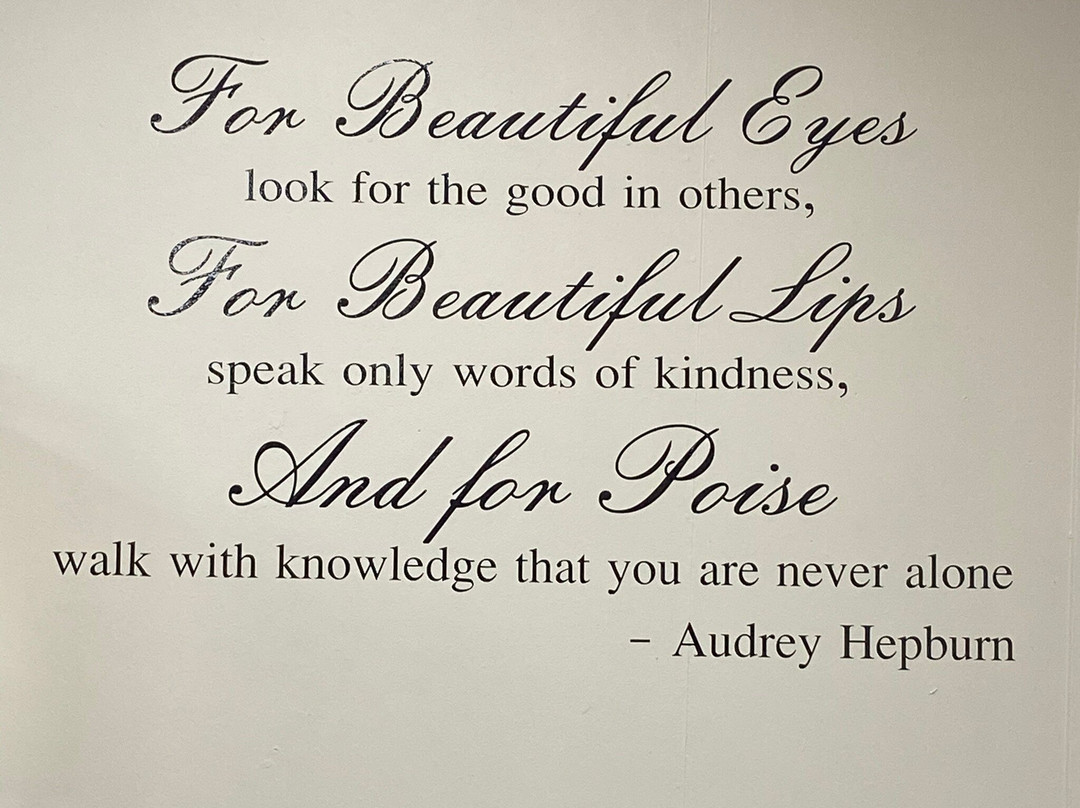 For Beautiful Eyes
look for the good in others,
For Beautiful Lips
speak only words of kindness,
And for Poise
walk with knowledge that you are never alone
- Audrey Hepburn